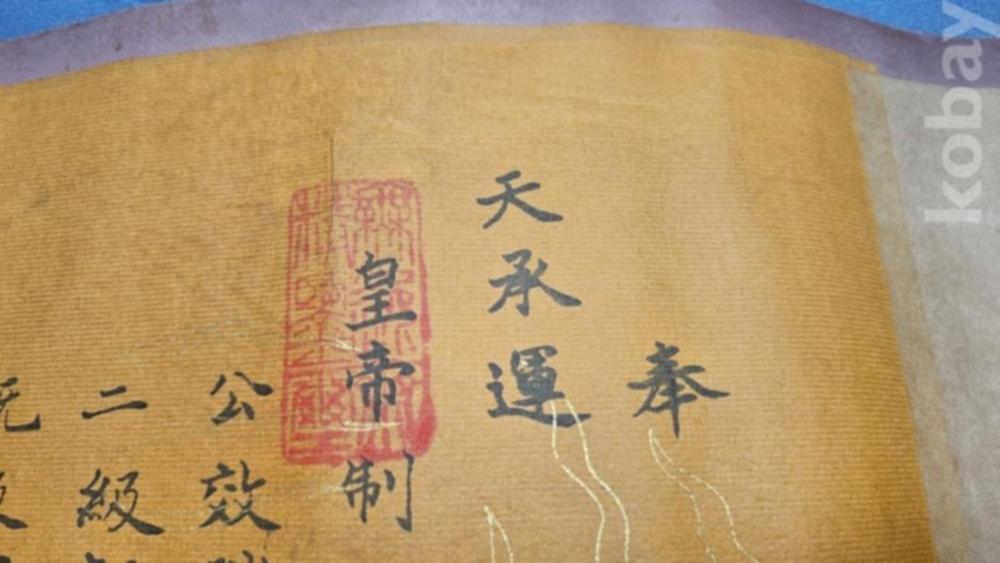 奉
天承運
皇帝制
公效
二級
kobay